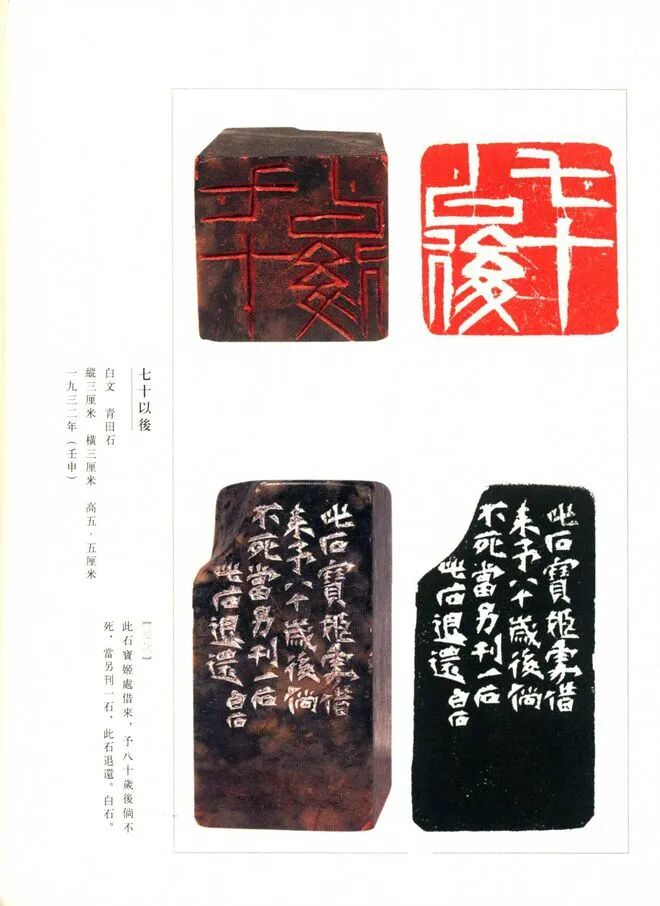 七十
㠯後
七十
㠯後
此石寶姬處借
來予八十歲後倘
不死當另刊一石
此石退還 白石
此石寶姬處借
來予八十歲後倘
不死當另刊一石
此石退還 白石
七十以後
白文 青田石
縱三厘米 橫三厘米 高五·五厘米
一九三二年（壬申）
此石寶姬處借來，予八十歲後倘不
死，當另刊一石，此石退還。白石。